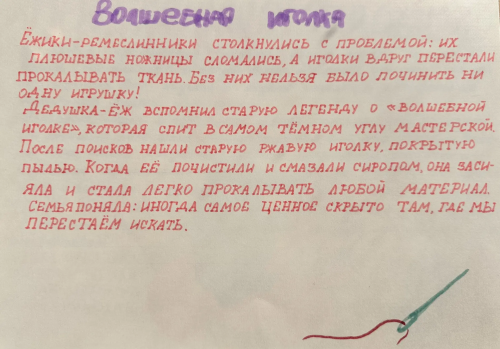 Волшебная иголка
Ёжики-ремеслинники столкнулись с проблемой: их
плюшевые ножницы сломались, а иголки вдруг перестали
прокалывать ткань. Без них нельзя было починить ни
одну игрушку!
Дедушка-ёж вспомнил старую легенду о «волшебной
иголке», которая спит в самом тёмном углу мастерской.
После поисков нашли старую ржавую иголку, покрытую
пылью. Когда её почистили и смазали сиропом, она заси-
яла и стала легко прокалывать любой материал.
Семья поняла: иногда самое ценное скрыто там, где мы
перестаём искать.